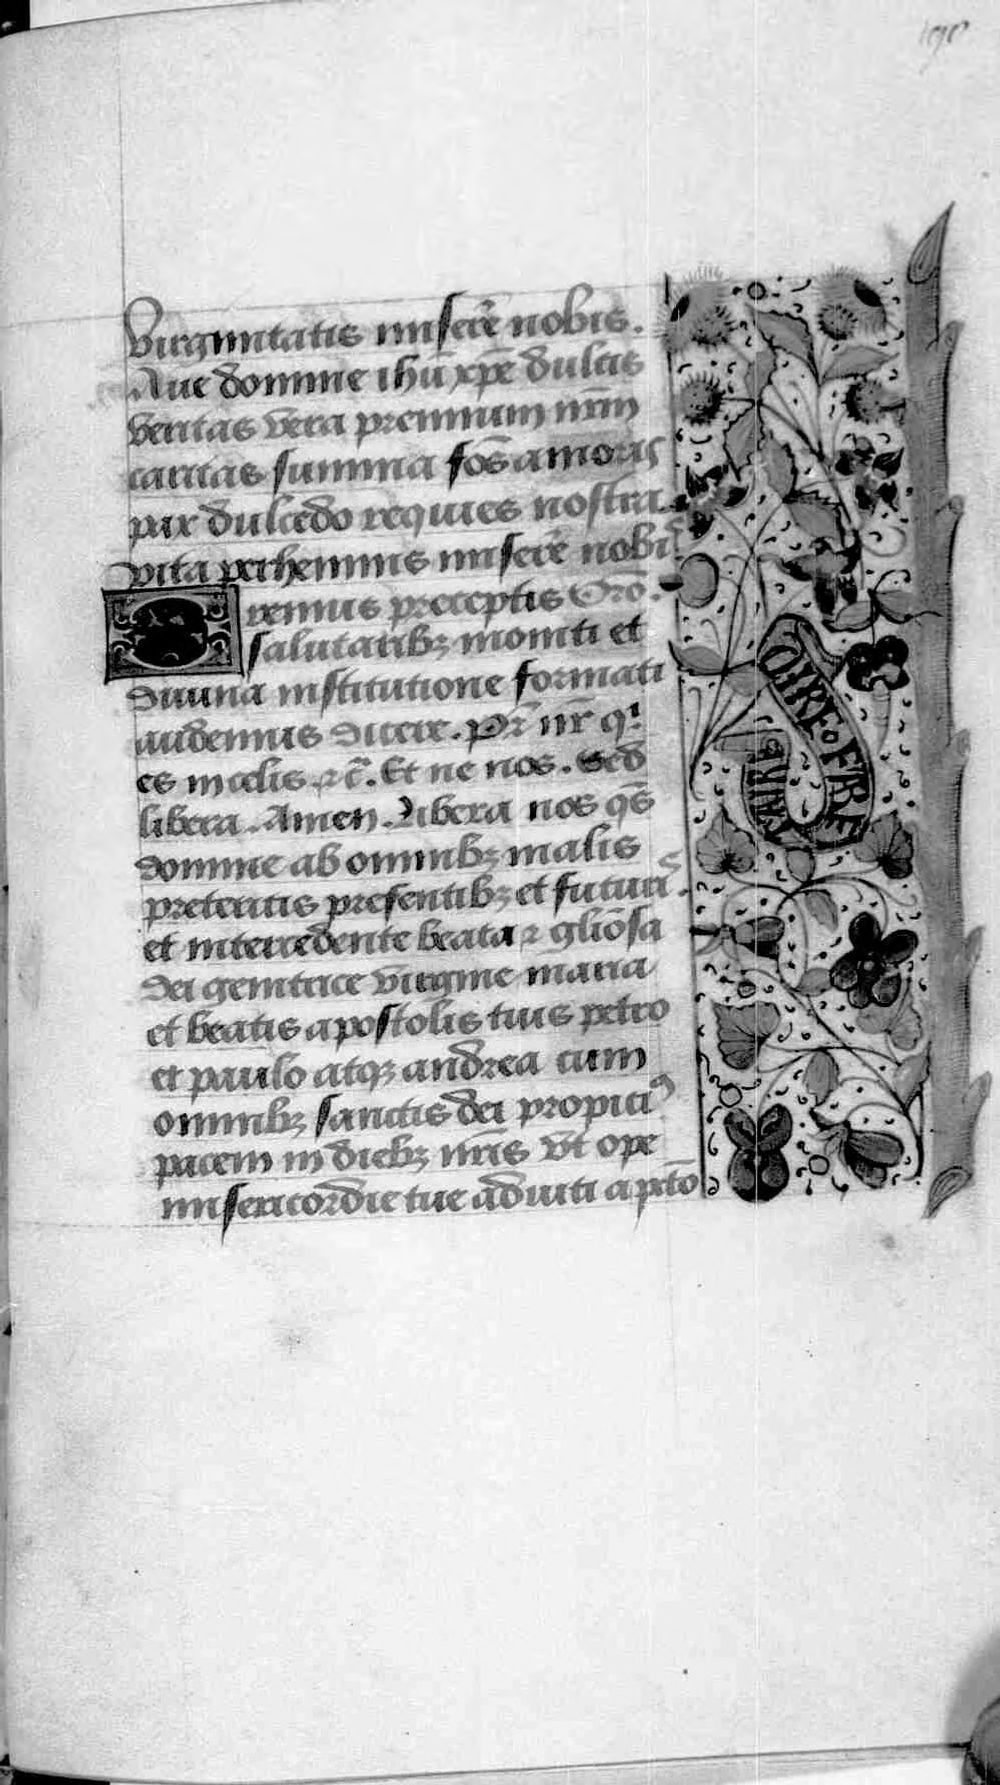 virginitatis miserē nobis.
Aue domine ihū xpē dulcis
veritas vera premium nr̄m
caritas summa fōs amoris
pax dulcedo requies nostra
vita perhennis miserē nobis.
Oremus preceptis Orō.
salutaribꝫ moniti et
diuina institutione formati
audemus dicere. Pr̄ nr̄ qͥ
es in celis ⁊c̄. Et ne nos. Sed
libera. Amen. Libera nos qs̄
domine ab omnibꝫ malis
preteritis presentibꝫ et futuris.
et intercedente beata ⁊ gliōsa
dei genitrice virgine maria
et beatis apostolis tuis petro
et paulo atqꝫ andrea cum
omnibꝫ sanctis dei propiciꝯ
pacem in diebꝫ nr̄is vt ope
misericordie tue adiuti a pctō
DIRE FAIRE
TAIRE